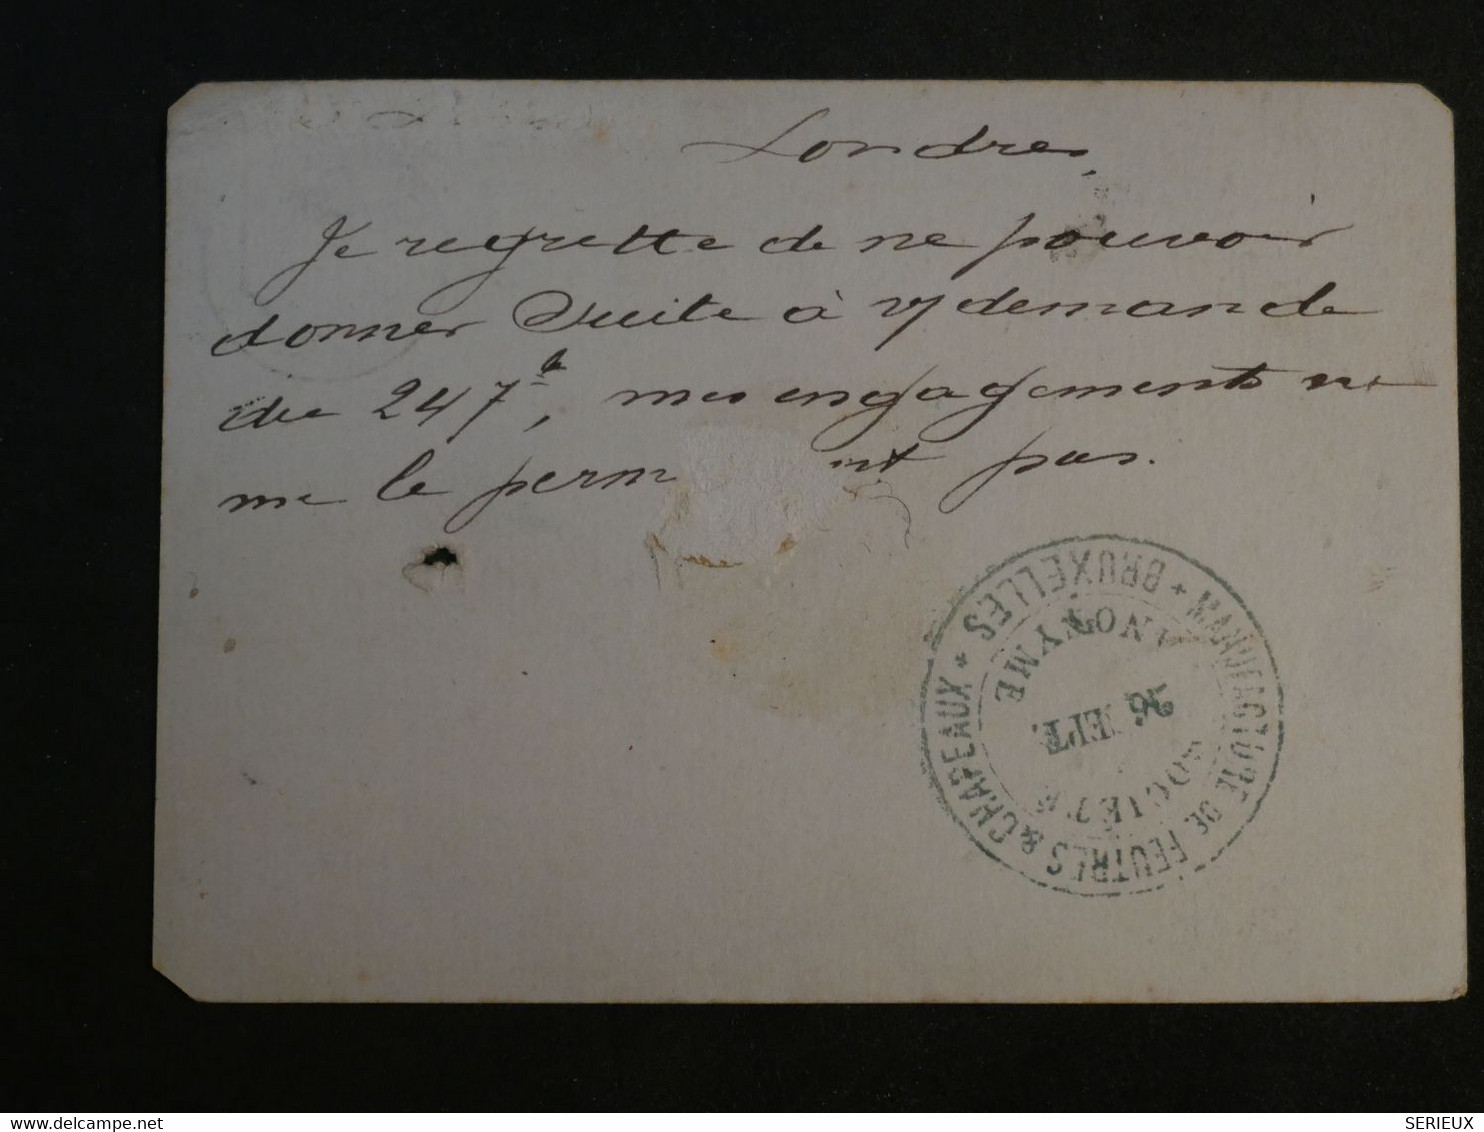 Londres,
Je regrette de ne pouvoir
donner Suite à v/ demande
du 24 7bre, mes engagements ne
me le perm nt pas.
MANUFACTURE DE FEUTRES & CHAPEAUX * BRUXELLES *
SOCIÉTÉ ANONYME
26 SEPT.
delcampe.net
SERIEUX